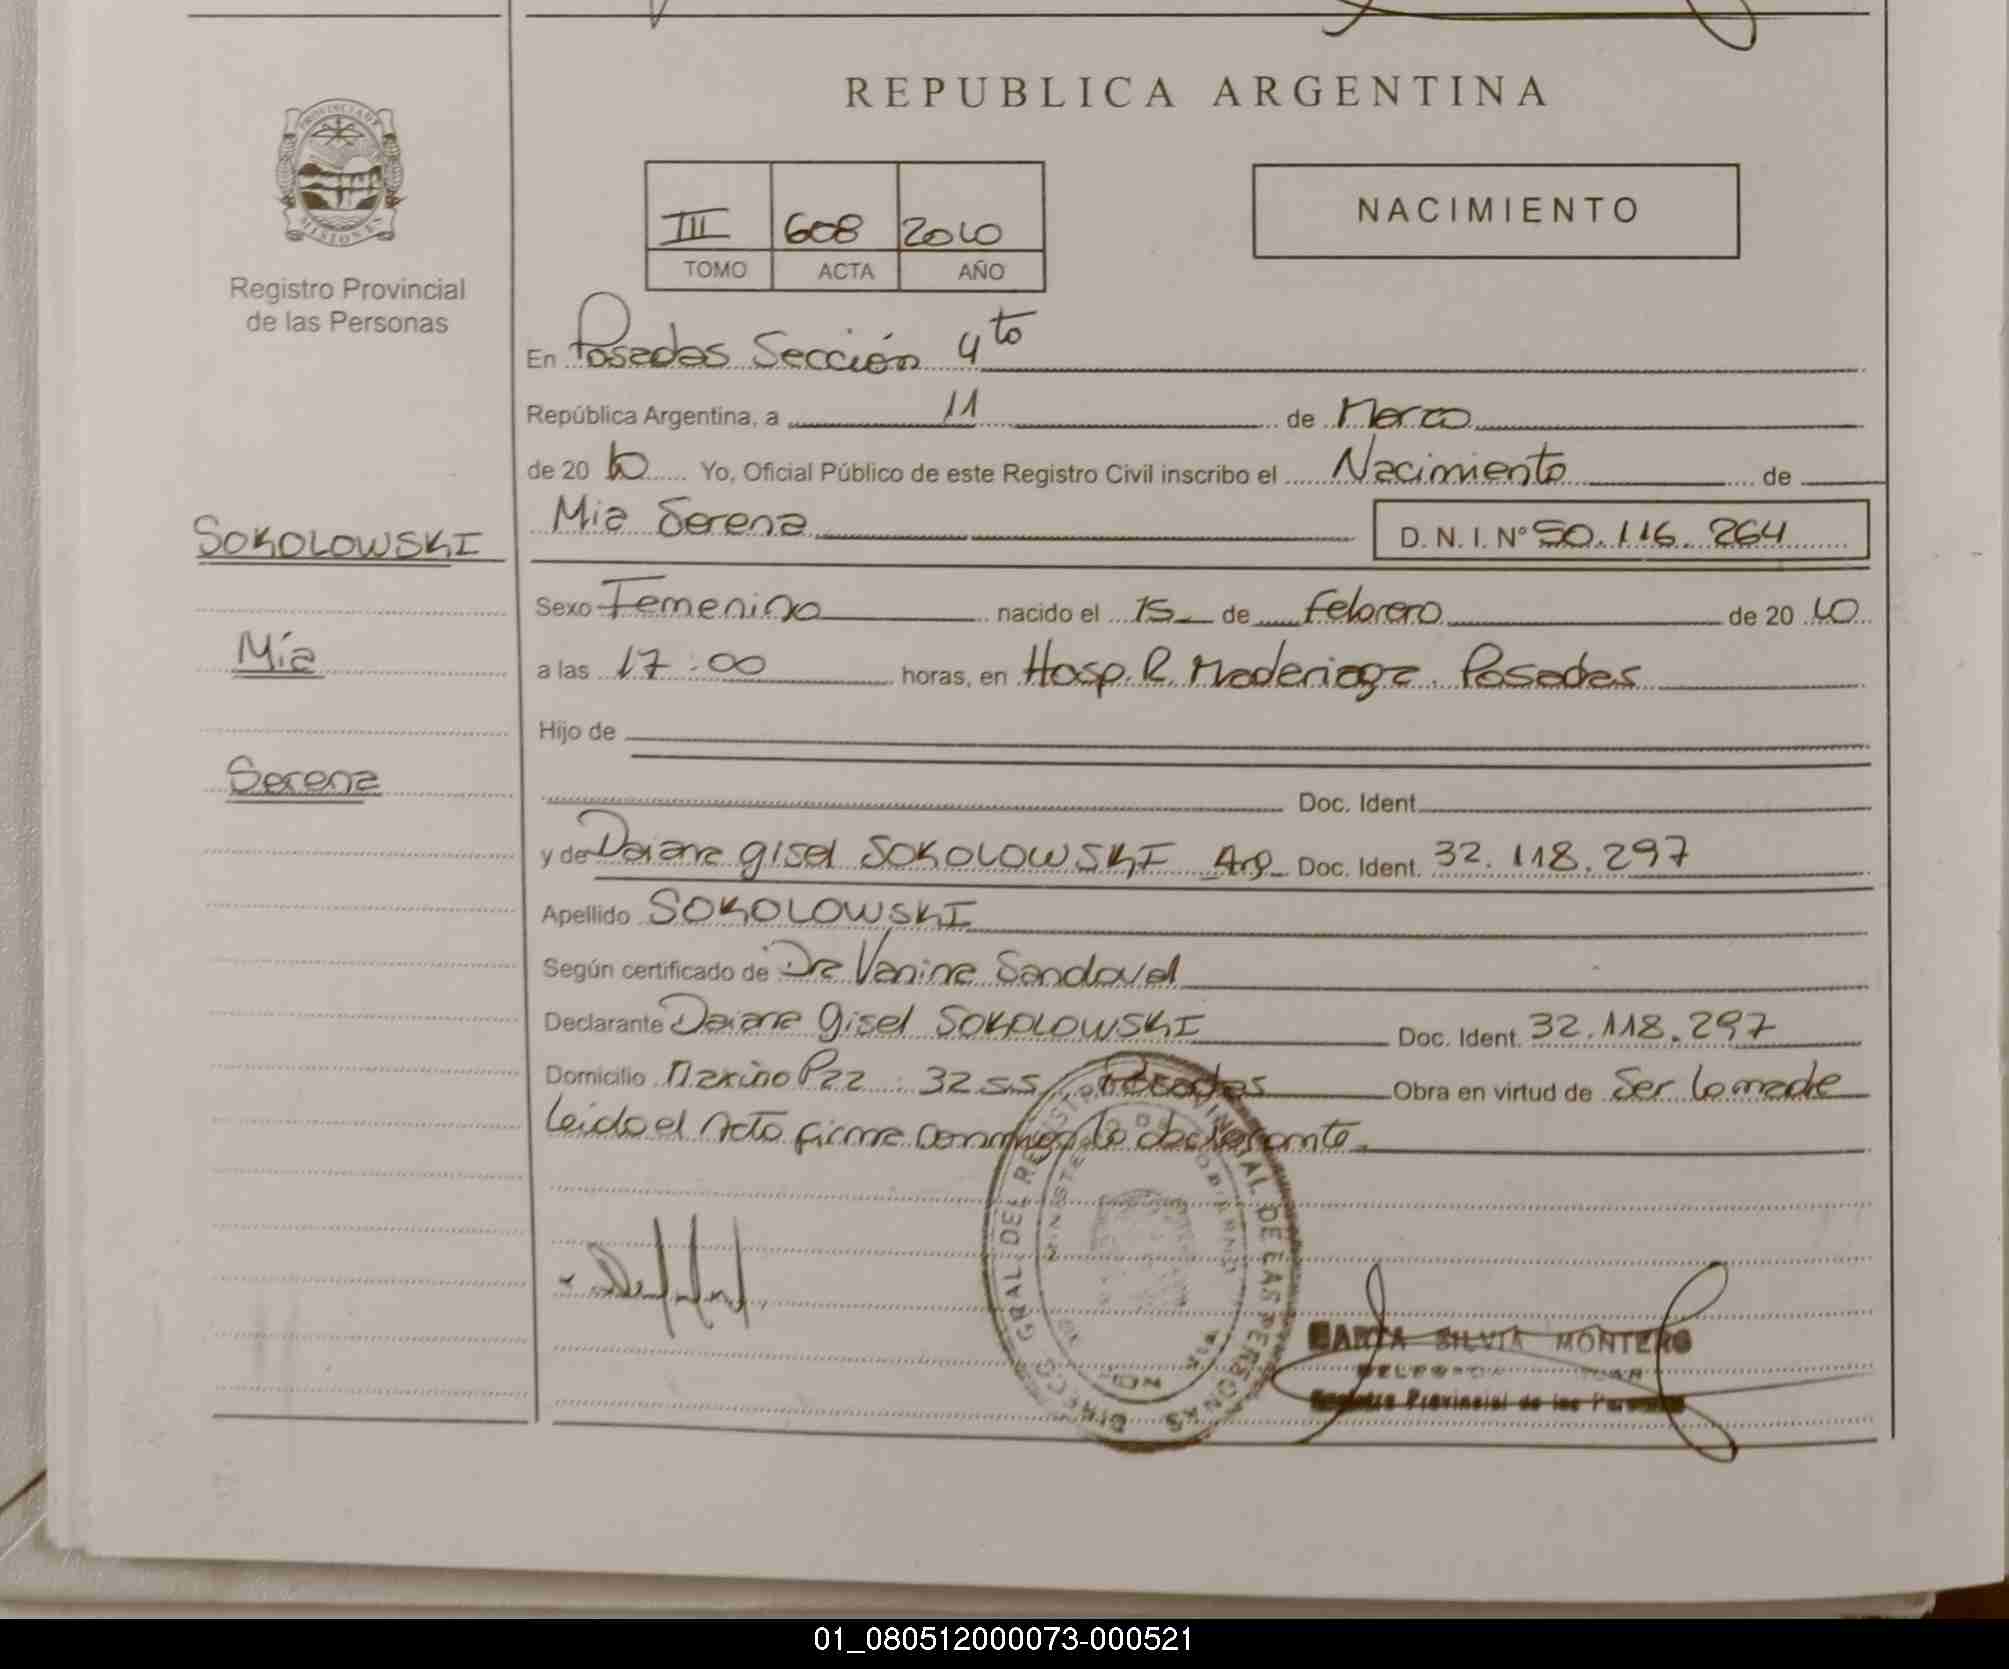 REPUBLICA ARGENTINA
PROVINCIA DE
MISIONES
Registro Provincial
de las Personas
III 608 2010
TOMO ACTA AÑO
NACIMIENTO
En Posadas Sección 4to
República Argentina, a 11 de Marzo
de 20 10 Yo, Oficial Público de este Registro Civil inscribo el Nacimiento de
SOKOLOWSKI
Mia Serena D. N. I. Nº 50.116.264
Sexo Femenino nacido el 15 de Febrero de 20 10
Mía
a las 17:00 horas, en Hosp. R. Maderiaga. Posadas
Hijo de
Serena
Doc. Ident.
y de Daiana Gisel SOKOLOWSKI Arg Doc. Ident. 32.118.297
Apellido SOKOLOWSKI
Según certificado de Dra Vanina Sandoval
Declarante Daiana Gisel SOKOLOWSKI Doc. Ident. 32.118.297
Domicilio Maximo Paz 3255 Posadas Obra en virtud de Ser la madre
Leida el Acta firma conmigo la declarante.
DIRECC. GRAL. DEL REGISTRO PROVINCIAL DE LAS PERSONAS
MINISTERIO DE GOBIERNO
MARTA SILVIA MONTERO
Registro Provincial de las Personas
01_080512000073-000521